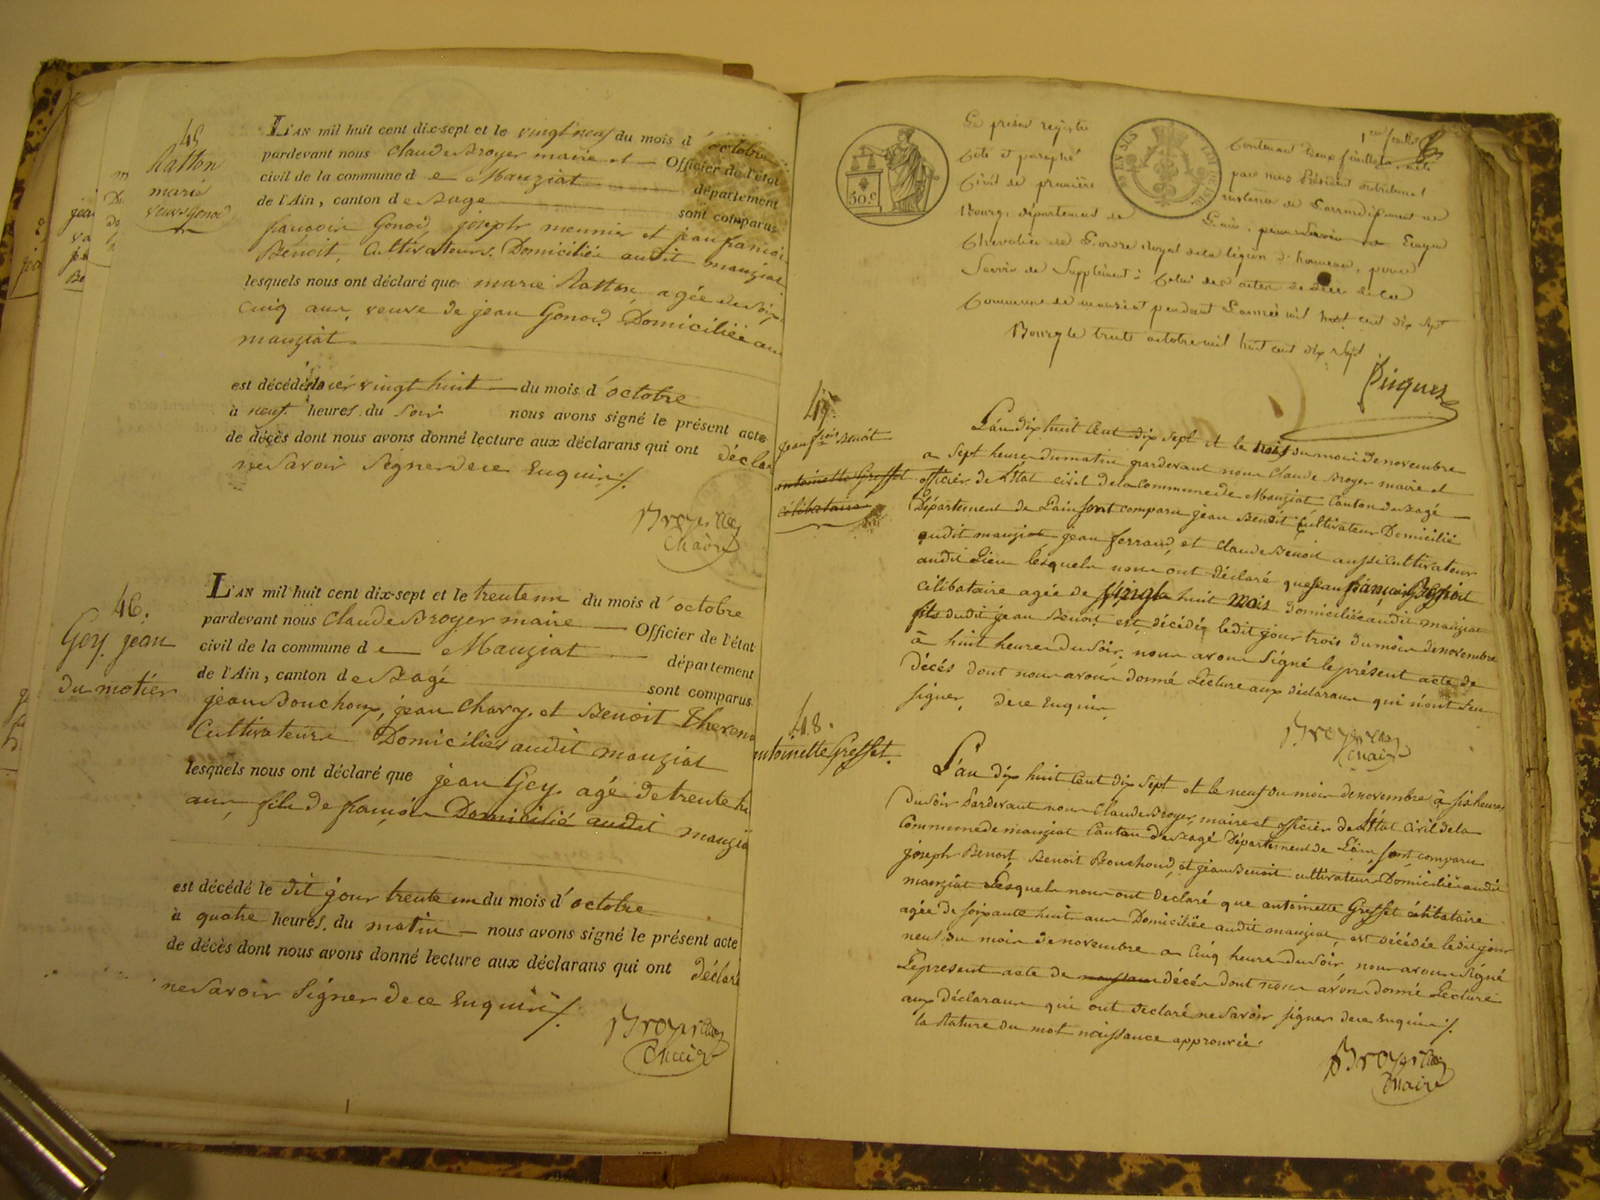 45
Ratton
marie
veuve Gonod
L'AN mil huit cent dix-sept et le vingt neuf du mois d'octobre
pardevant nous Claude Broyer maire et Officier de l'état
civil de la commune de Manziat département
de l'Ain, canton de Bagé sont comparus
françois Gonod, joseph meunier et jean françois
Benoit, Cultivateurs, Domiciliés audit manziat
lesquels nous ont déclaré que marie Ratton, agée de soix
cinq ans, veuve de jean Gonod, Domiciliée au
manziat
est décédée hier vingt huit du mois d'octobre
à neuf heures du soir nous avons signé le présent acte
de décès dont nous avons donné lecture aux déclarans qui ont déclar
ne savoir signer de ce Enquis /.
Broyer
maire
46.
Goy. jean
du motier
L'AN mil huit cent dix-sept et le trente un du mois d'octobre
pardevant nous Claude Broyer maire Officier de l'état
civil de la commune de Manziat département
de l'Ain, canton de Bagé sont comparus
jean Bouchoux, jean Chary, et Benoit Theveno
Cultivateurs Domiciliés audit manziat
lesquels nous ont déclaré que jean Goy. agé de trente
ans, fils de françois Domicilié audit manzia
est décédé le dit jour trente un du mois d'octobre
à quatre heures du matin nous avons signé le présent acte
de décès dont nous avons donné lecture aux déclarans qui ont déclaré
ne savoir signer de ce Enquis /.
Broyer
maire
50.c
Le présent registre
Contenant deux feuillets
Cité et paraphé
par nous Président du tribunal
Civil de première
instance de l'arrondissement de
Bourg, département de
l'ain,
Chevalier de l'ordre royal de la légion d'honneur, pour
Servir de Supplément à celui des actes de décès de la
Commune de manziat pendant l'année mil huit cent dix sept
Bourg le trente octobre mil huit cent dix sept
47.
jean f.çois Benoit
antoinette Greffet
célibataire
L'an dix huit Cent dix sept et le trois du mois de novembre
a sept heures du matin pardevant nous Claude Broyer maire et
officier de l'État civil de la Commune de Manziat Canton de Bagé
Département de l'ain sont comparu jean Benoit Cultivateur Domicilié
audit manziat jean ferrand, et Claude Benoit aussi Cultivateur
audit Lieu lesquels nous ont déclaré que jean françois Benoit
célibataire agée de vingt huit mois domiciliée audit manziat
fils dudit jean Benoit est décédée ledit jour trois du mois de novembre
à huit heures du soir, nous avons signé le présent acte de
décès dont nous avons donné Lecture aux déclarans qui n'ont seu
signer, de ce Enquis,
Broyer
maire
48.
antoinette Greffet.
L'an dix huit Cent dix sept et le neuf du mois de novembre à six heures
du soir Pardevant nous Claude Broyer, maire et officier de l'État civil de la
Commune de manziat Canton de Bagé Département de l'ain, sont comparu
joseph Benoit, Benoit Bouchoud, et jean Benoit cultivateurs Domiciliés audit
manziat Lesquels nous ont déclaré que antoinette Greffet célibataire
agée de soixante huit ans Domiciliée audit manziat, est décédée ledit jour
neuf du mois de novembre a Cinq heures du soir, nous avons signé
Le present acte de naissance décés dont nous avons donné Lecture
aux déclarans qui ont déclaré ne savoir signer de ce enquis /.
la Rature du mot naissance approuvée.
Broyer
maire